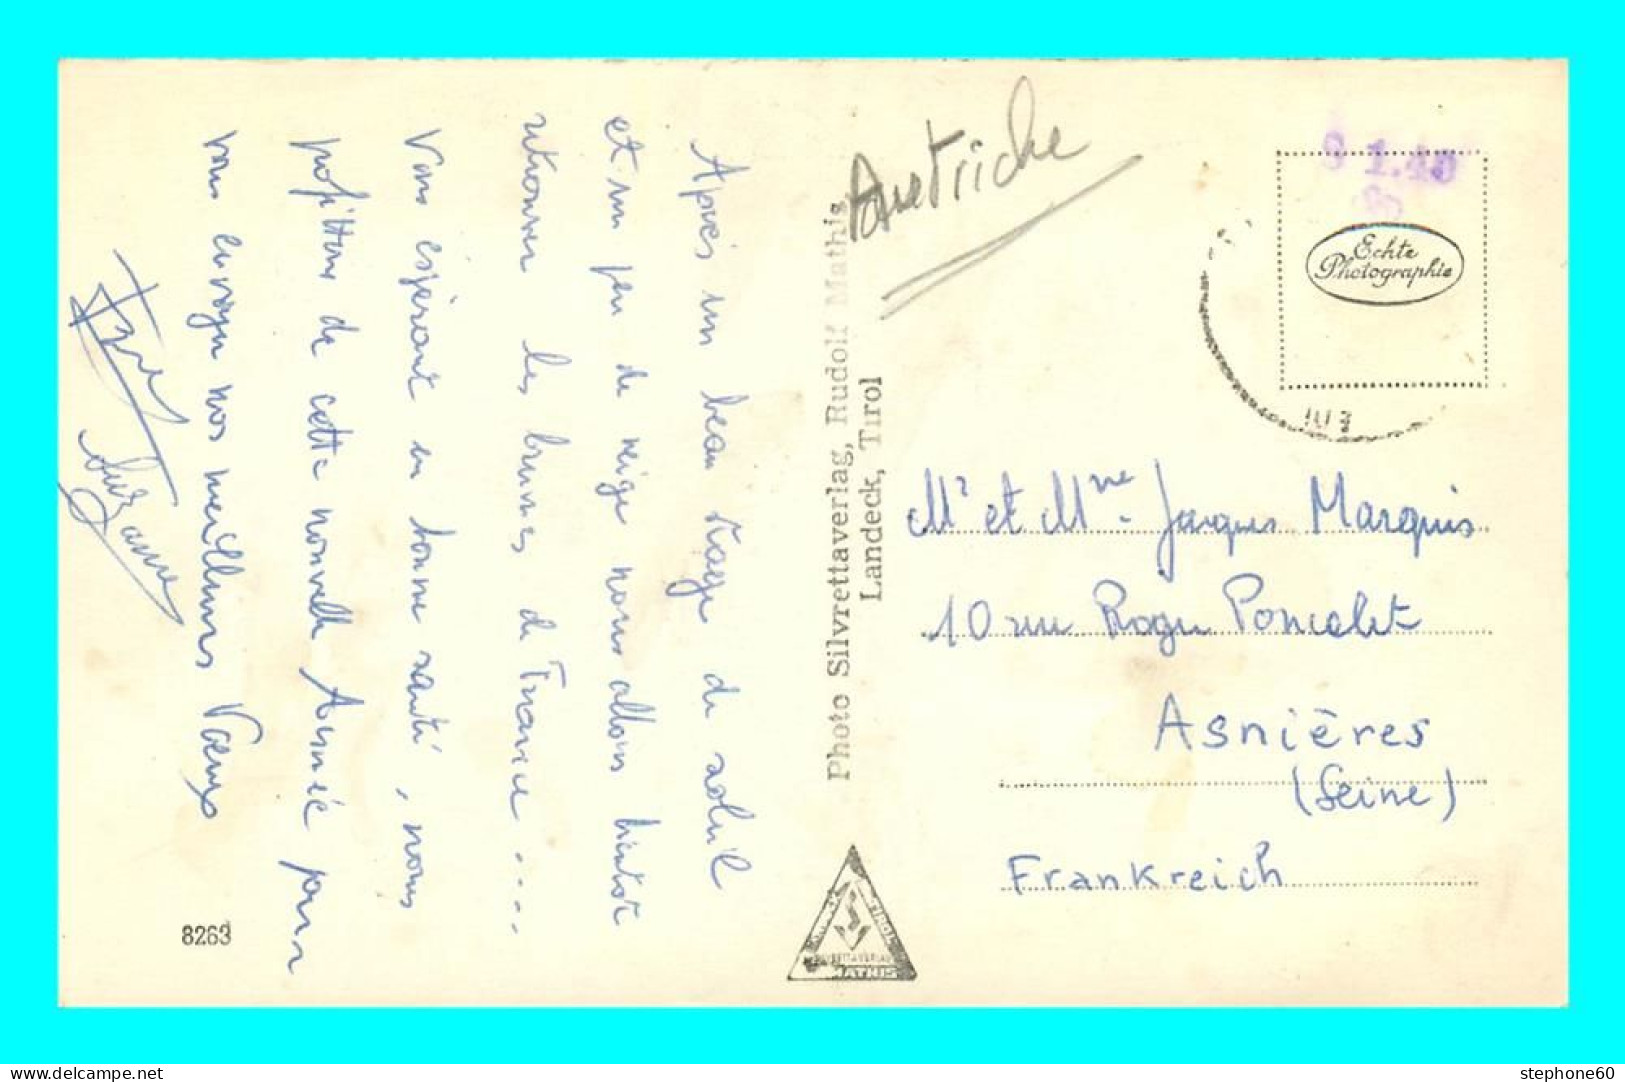 Après un beau stage de soleil
et un peu de neige nous allons bientôt
retrouver les brumes de France .....
Vous espérant en bonne santé, nous
profitons de cette nouvelle Année pour
vous envoyer nos meilleurs Vœux
Suzanne
8263
Photo Silvrettaverlag, Rudolf Mathis
Landeck, Tirol
Autriche
S 1.40
Echte
Photographie
TIROL
MATHIS
Mr et Mme Jacques Marquis
10 rue Roger Poncelet
Asnières
(Seine)
Frankreich
www.delcampe.net
stephone60